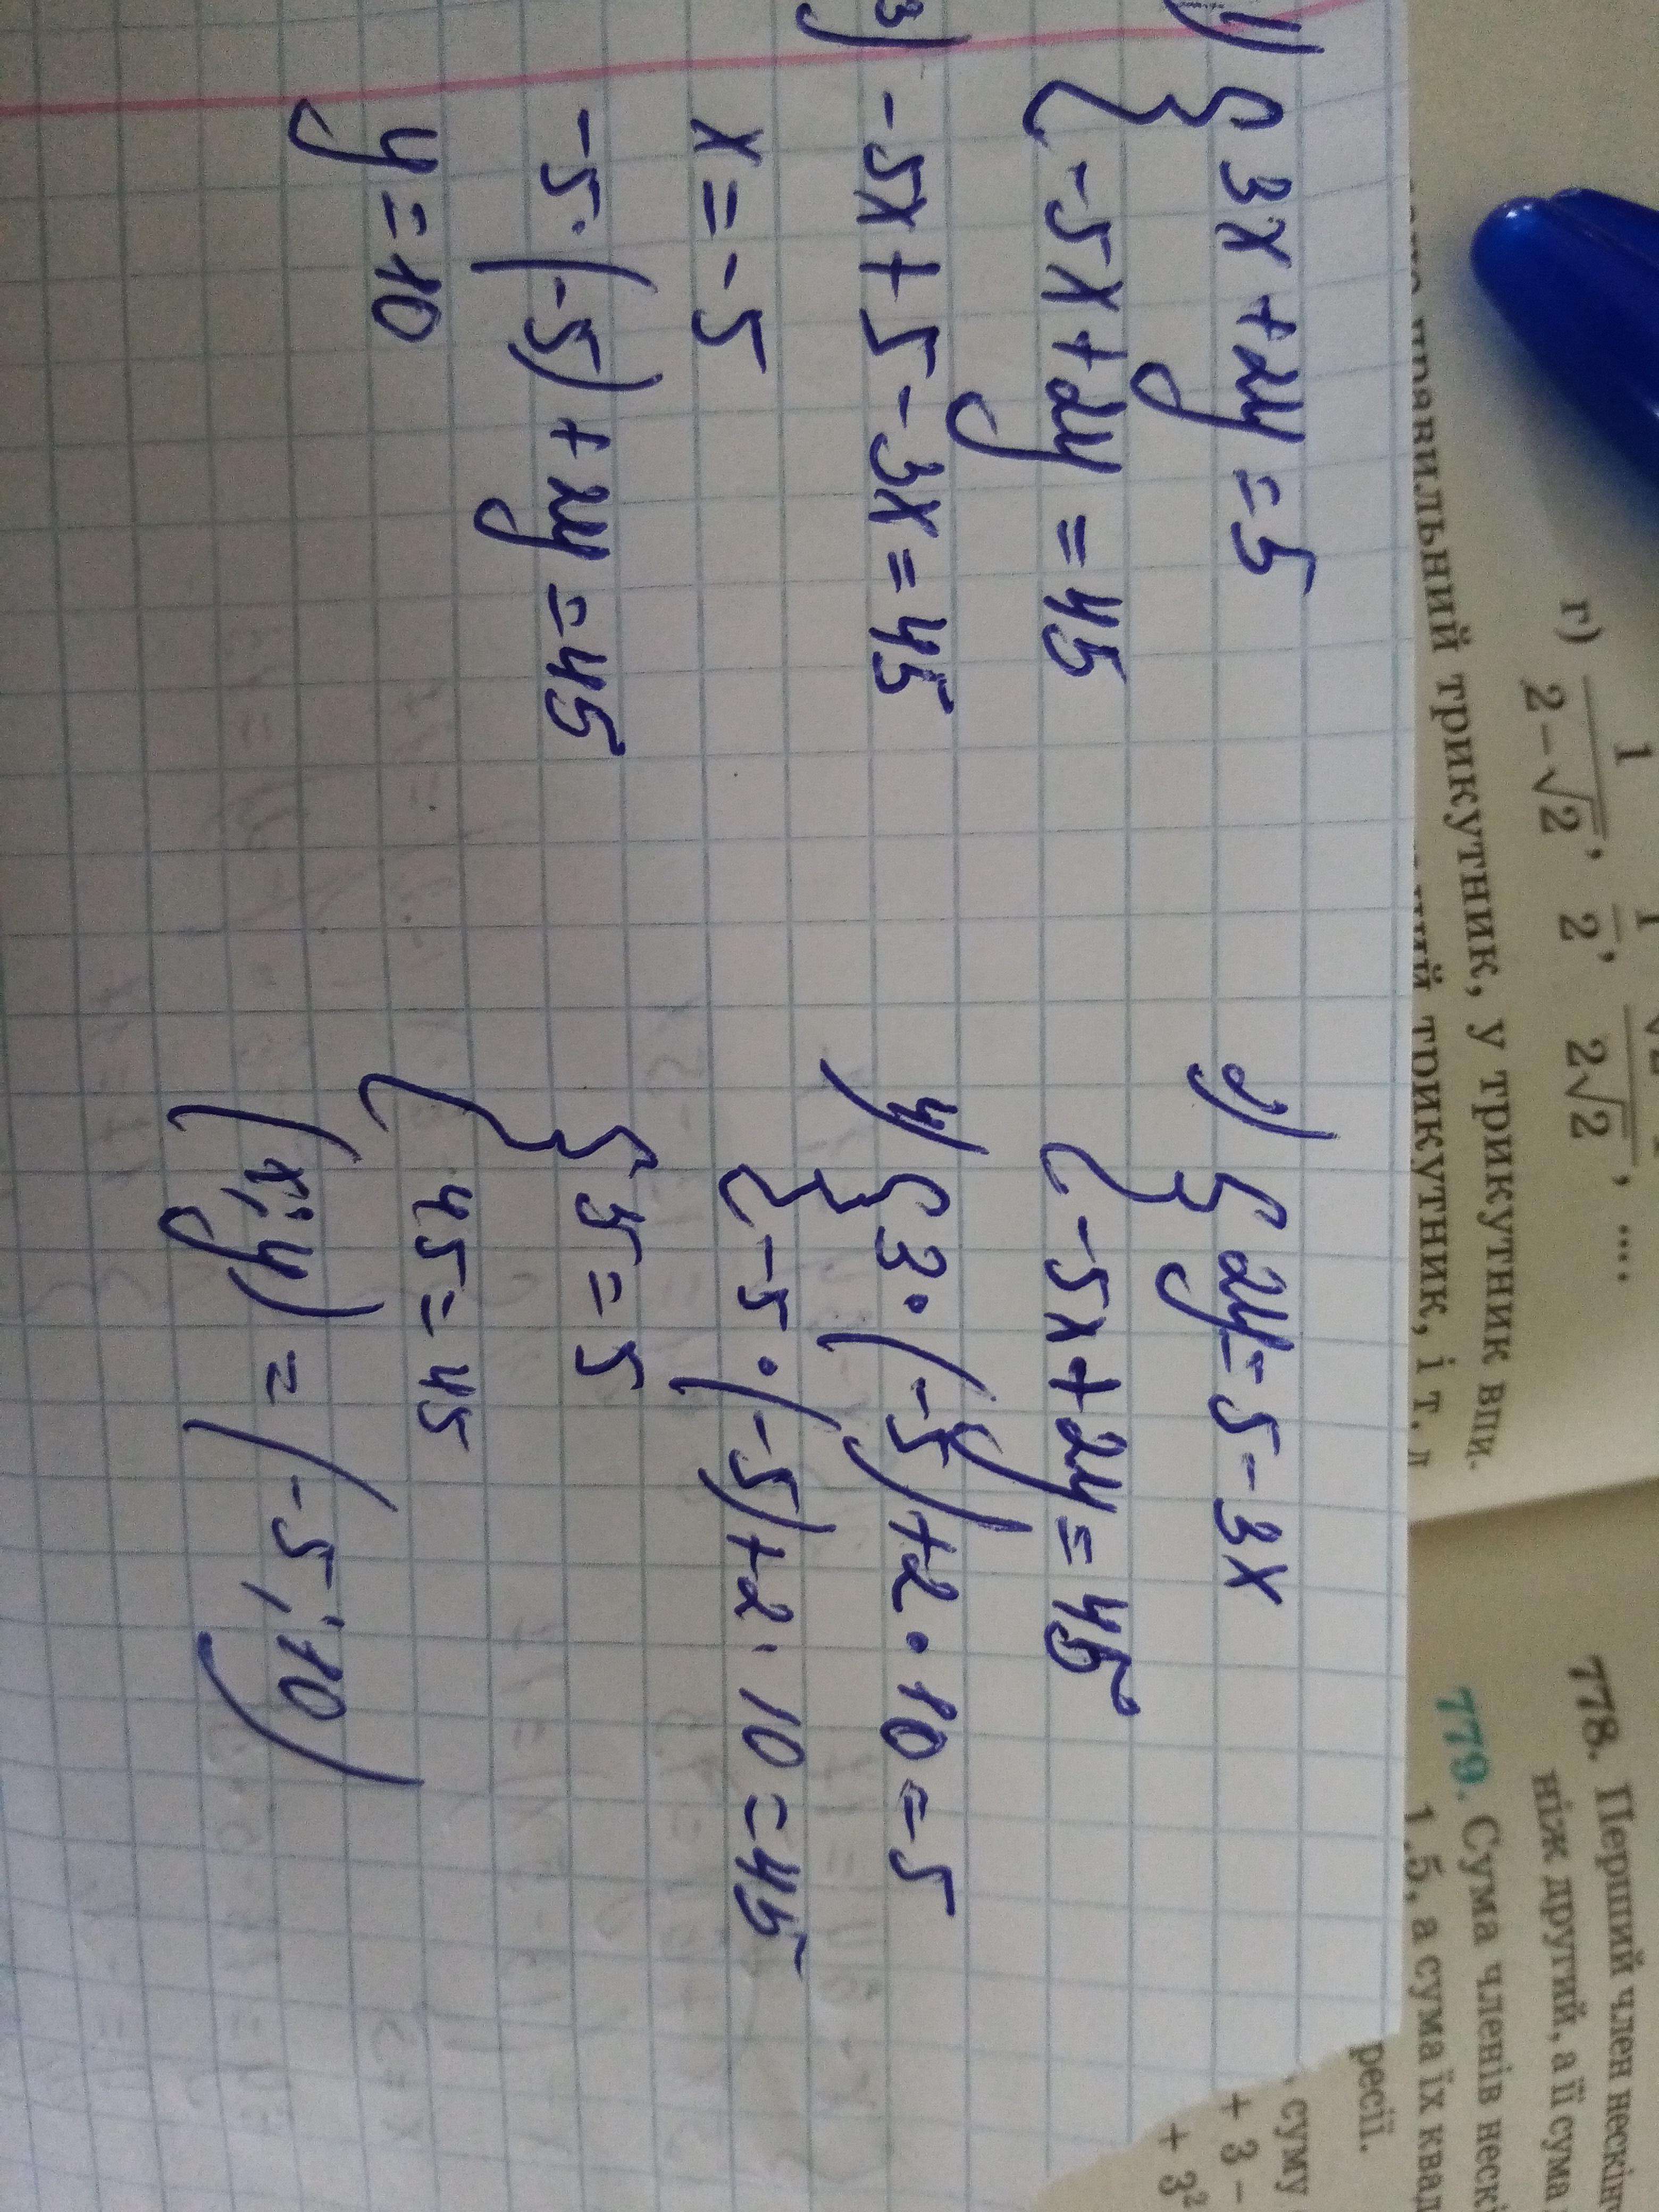 1) { 3x + 2y = 5
-5x + 2y = 45
3) -5x + 5 - 3x = 45
x = -5
-5 · (-5) + 2y = 45
y = 10
2) { 2y = 5 - 3x
-5x + 2y = 45
4) { 3 · (-5) + 2 · 10 = 5
-5 · (-5) + 2 · 10 = 45
{ 5 = 5
45 = 45
(x; y) = (-5; 10)
г) 1/(2-√2), 1/2, 1/(2√2), ...
правильний трикутник, у трикутник впи-
трикутник, і т. д
778. Перший член нескін
ніж другий, а її сума
779. Сума членів нескі
1,5, а сума їх квад
ресії.
суму
+ 3 -
+ 3²